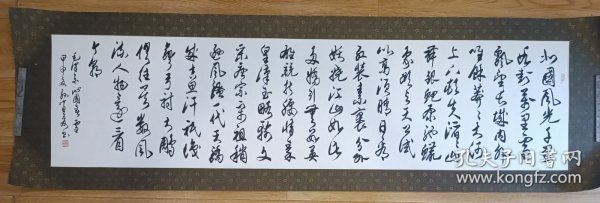 北國風光千里
冰封萬里雪
飄望長城内外
唯餘莽莽大河
上下頓失滔滔山
舞銀蛇原馳蠟
象欲與天公試
比高須晴日看
紅裝素裹分外
妖嬈江山如此
多嬌引無數英
雄競折腰惜秦
皇漢武略輸文
采唐宗宋祖稍
遜風騷一代天驕
成吉思汗祇識
彎弓射大雕
俱往矣數風
流人物還看
今朝
毛澤東沁園春雪
甲申
孔夫子旧书网